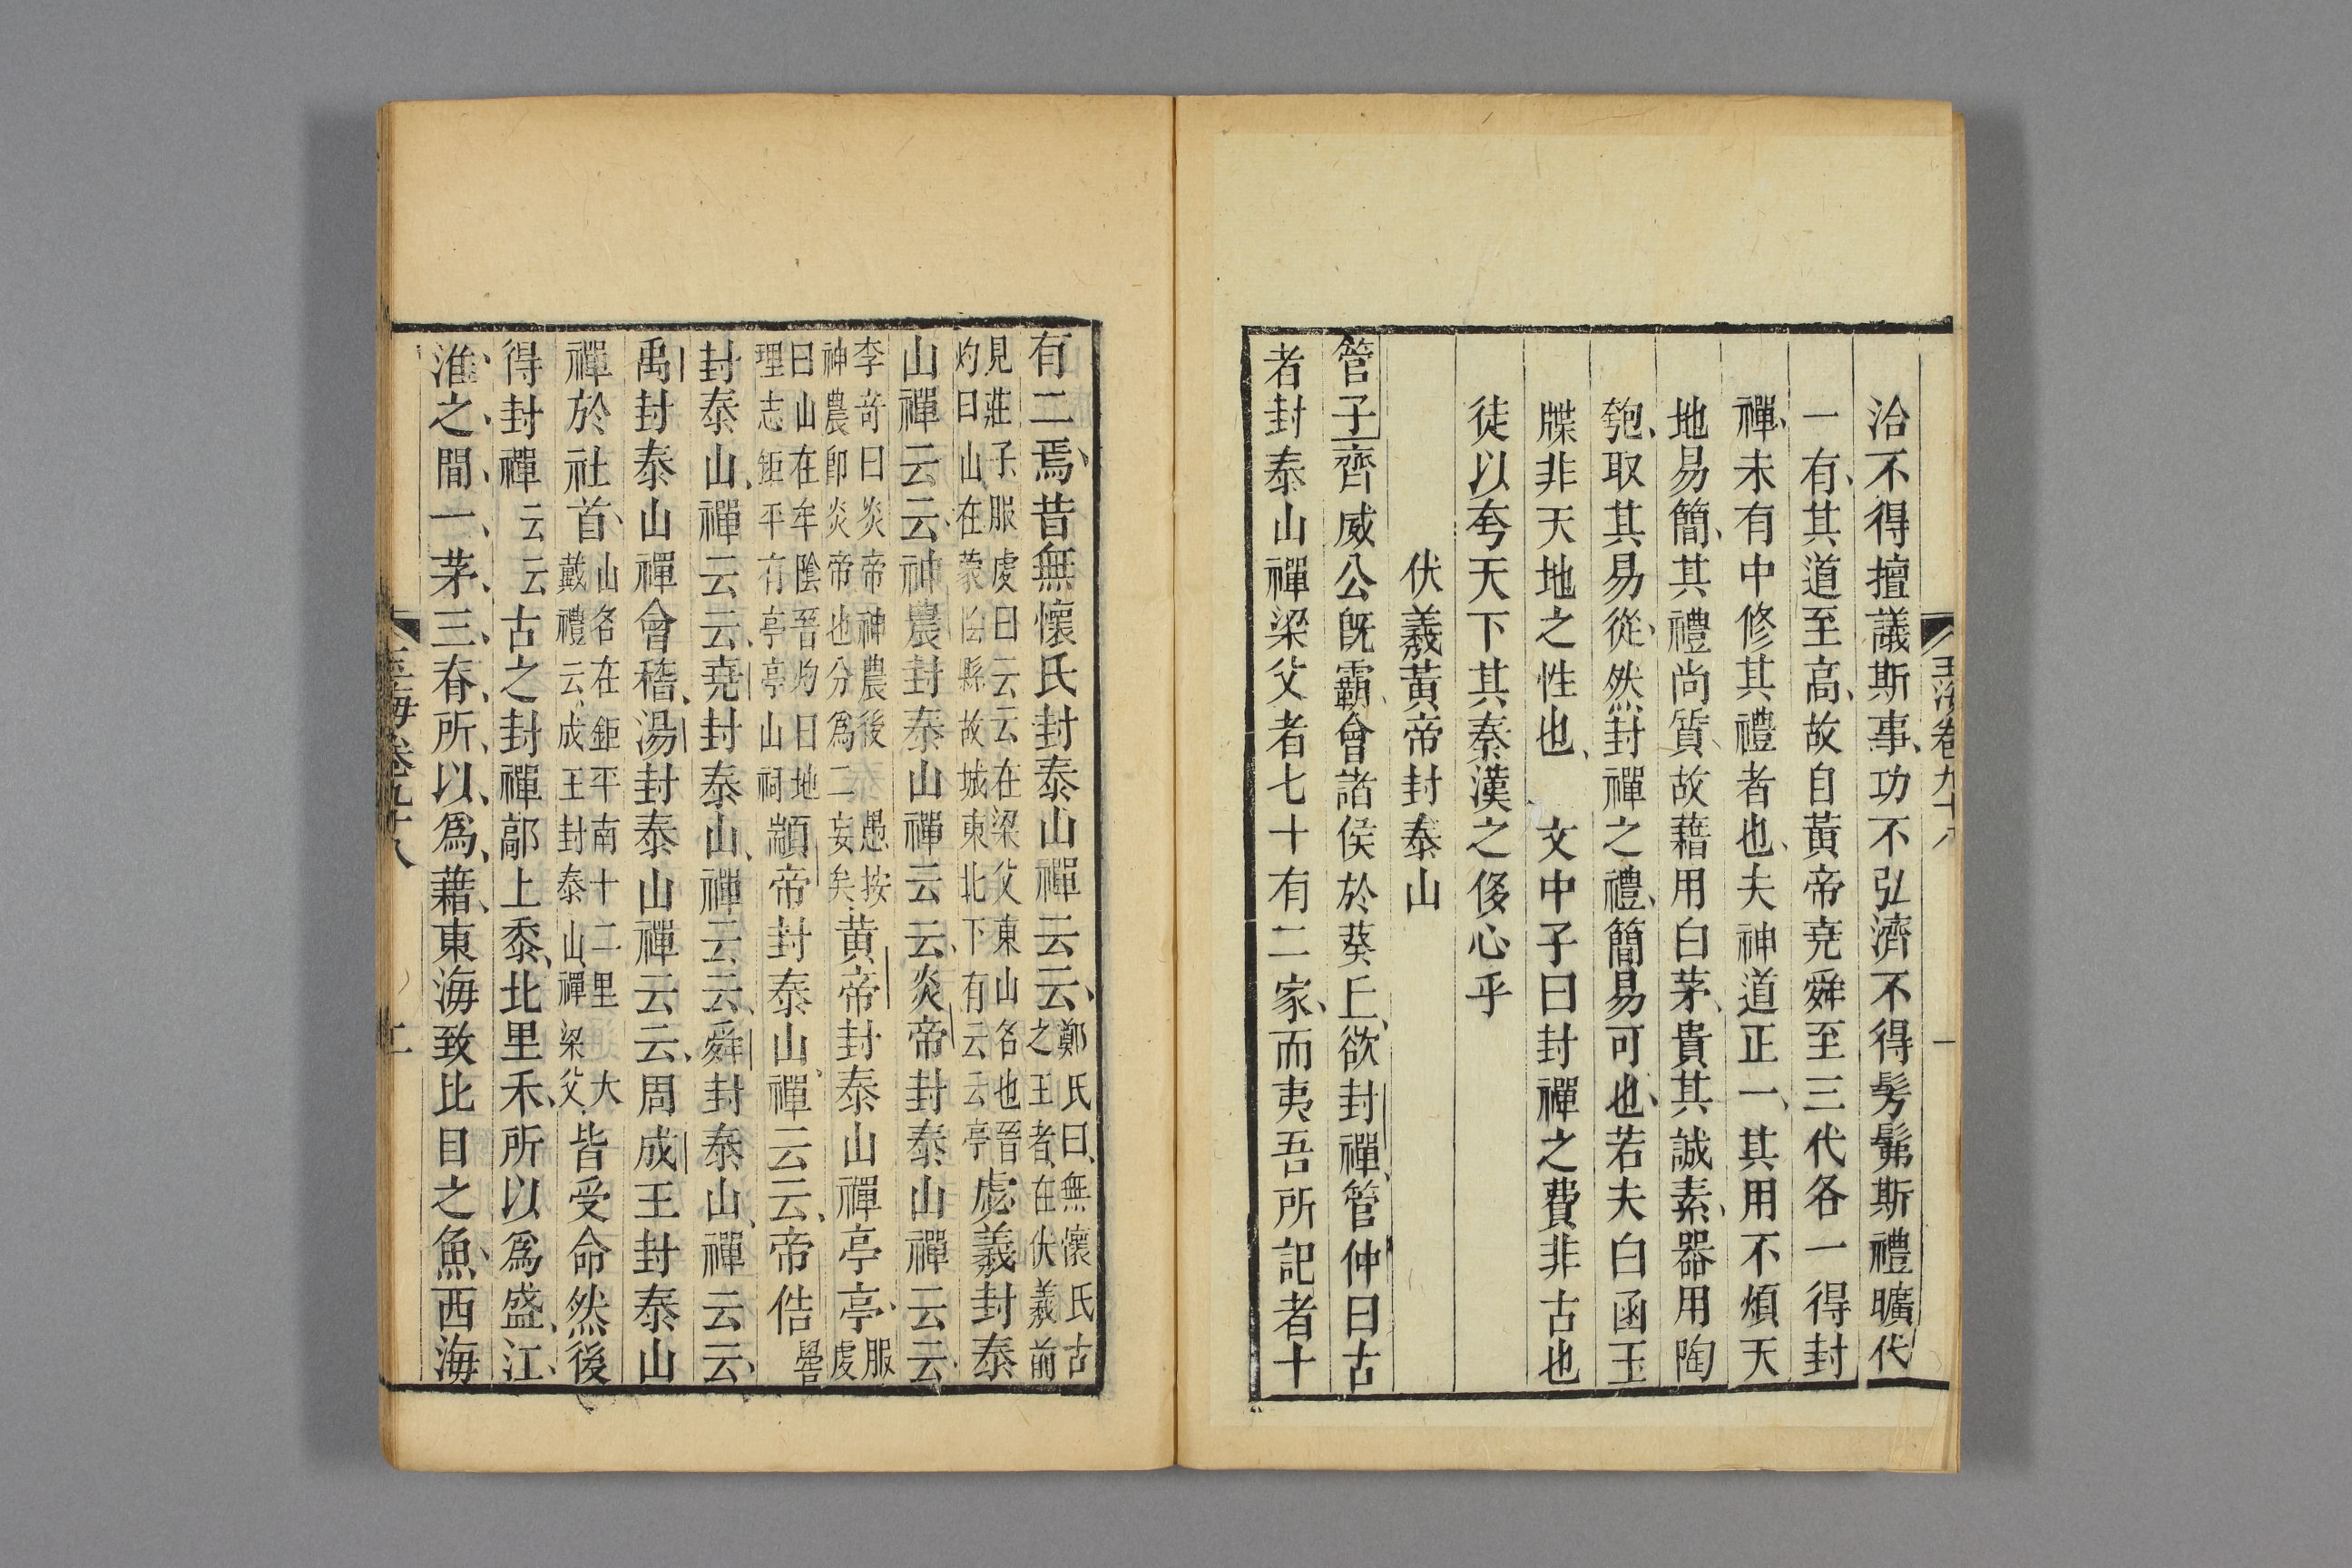 玉海卷九十八
一
洽不得擅議斯事功不弘濟不得髣髴斯禮曠代
一有其道至高故自黃帝堯舜至三代各一得封
禪未有中修其禮者也夫神道正一其用不煩天
地易簡其禮尚質故藉用白茅貴其誠素器用陶
匏取其易從然封禪之禮簡易可也若夫白函玉
牒非天地之性也 文中子曰封禪之費非古也
徒以夸天下其秦漢之侈心乎
伏羲黃帝封泰山
管子齊威公旣霸會諸侯於葵丘欲封禪管仲曰古
者封泰山禪梁父者七十有二家而夷吾所記者十
有二焉昔無懷氏封泰山禪云云鄭氏曰無懷氏古
之王者在伏羲前
見莊子服虔曰云云在梁父東山名也晉
灼曰山在蒙陰縣故城東北下有云云亭
虙羲封泰
山禪云云神農封泰山禪云云炎帝封泰山禪云云
李奇曰炎帝神農後 愚按
神農卽炎帝也分爲二妄矣
黃帝封泰山禪亭亭服
虔
曰山在牟陰晉灼曰地
理志鉅平有亭亭山祠
顓帝封泰山禪云云帝俈嚳
封泰山禪云云堯封泰山禪云云舜封泰山禪云云
禹封泰山禪會稽湯封泰山禪云云周成王封泰山
禪於社首山名在鉅平南十二里 大
戴禮云成王封泰山禪梁父
皆受命然後
得封禪云云古之封禪鄗上黍北里禾所以爲盛江
淮之間一茅三脊所以爲藉東海致比目之魚西海
玉海卷九十八
二